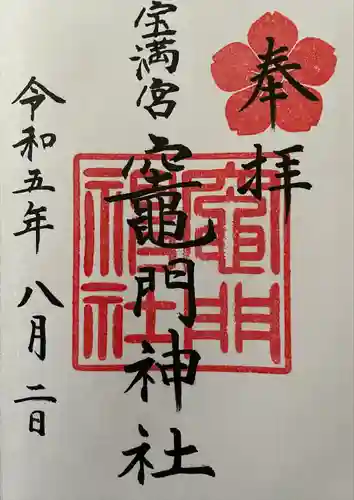 奉拝
宝満宮
竈門神社
令和五年 八月 二日
竈門
神社